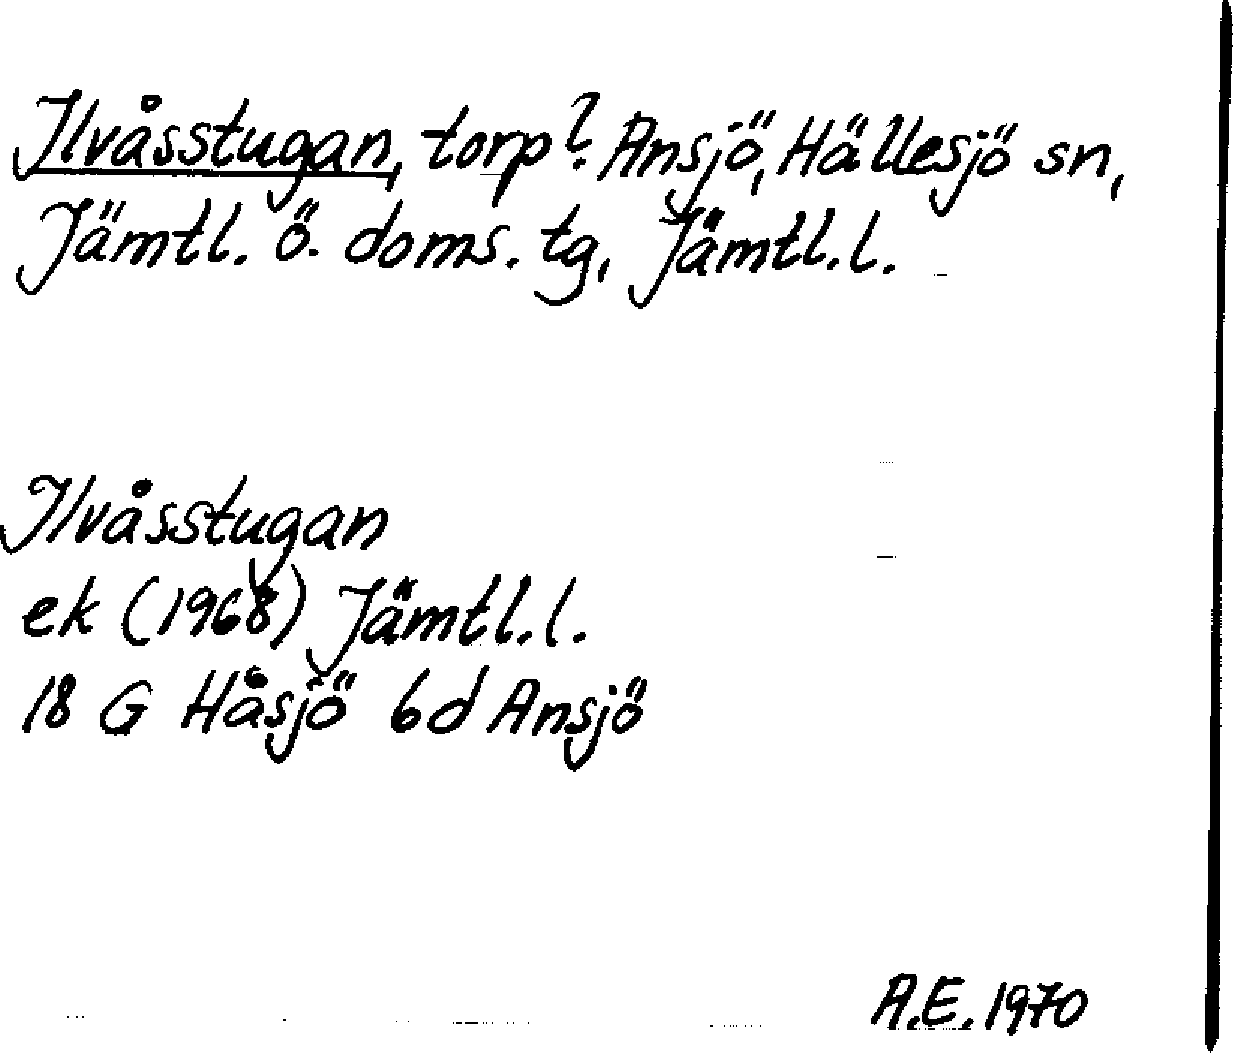 Ilvåsstugan, torp? Ansjö, Hällesjö sn,
Jämtl. ö. doms. tg, Jämtl. l.
Ilvåsstugan
ek (1968) Jämtl. l.
18 G Håsjö 6d Ansjö
A.E. 1970